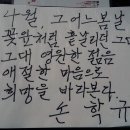 4월, 그 어느 봄날
꽃잎처럼 흩날리던 그대
그대 영원한 젊음
애절한 마음으로
희망을 바라본다.
손 학 규